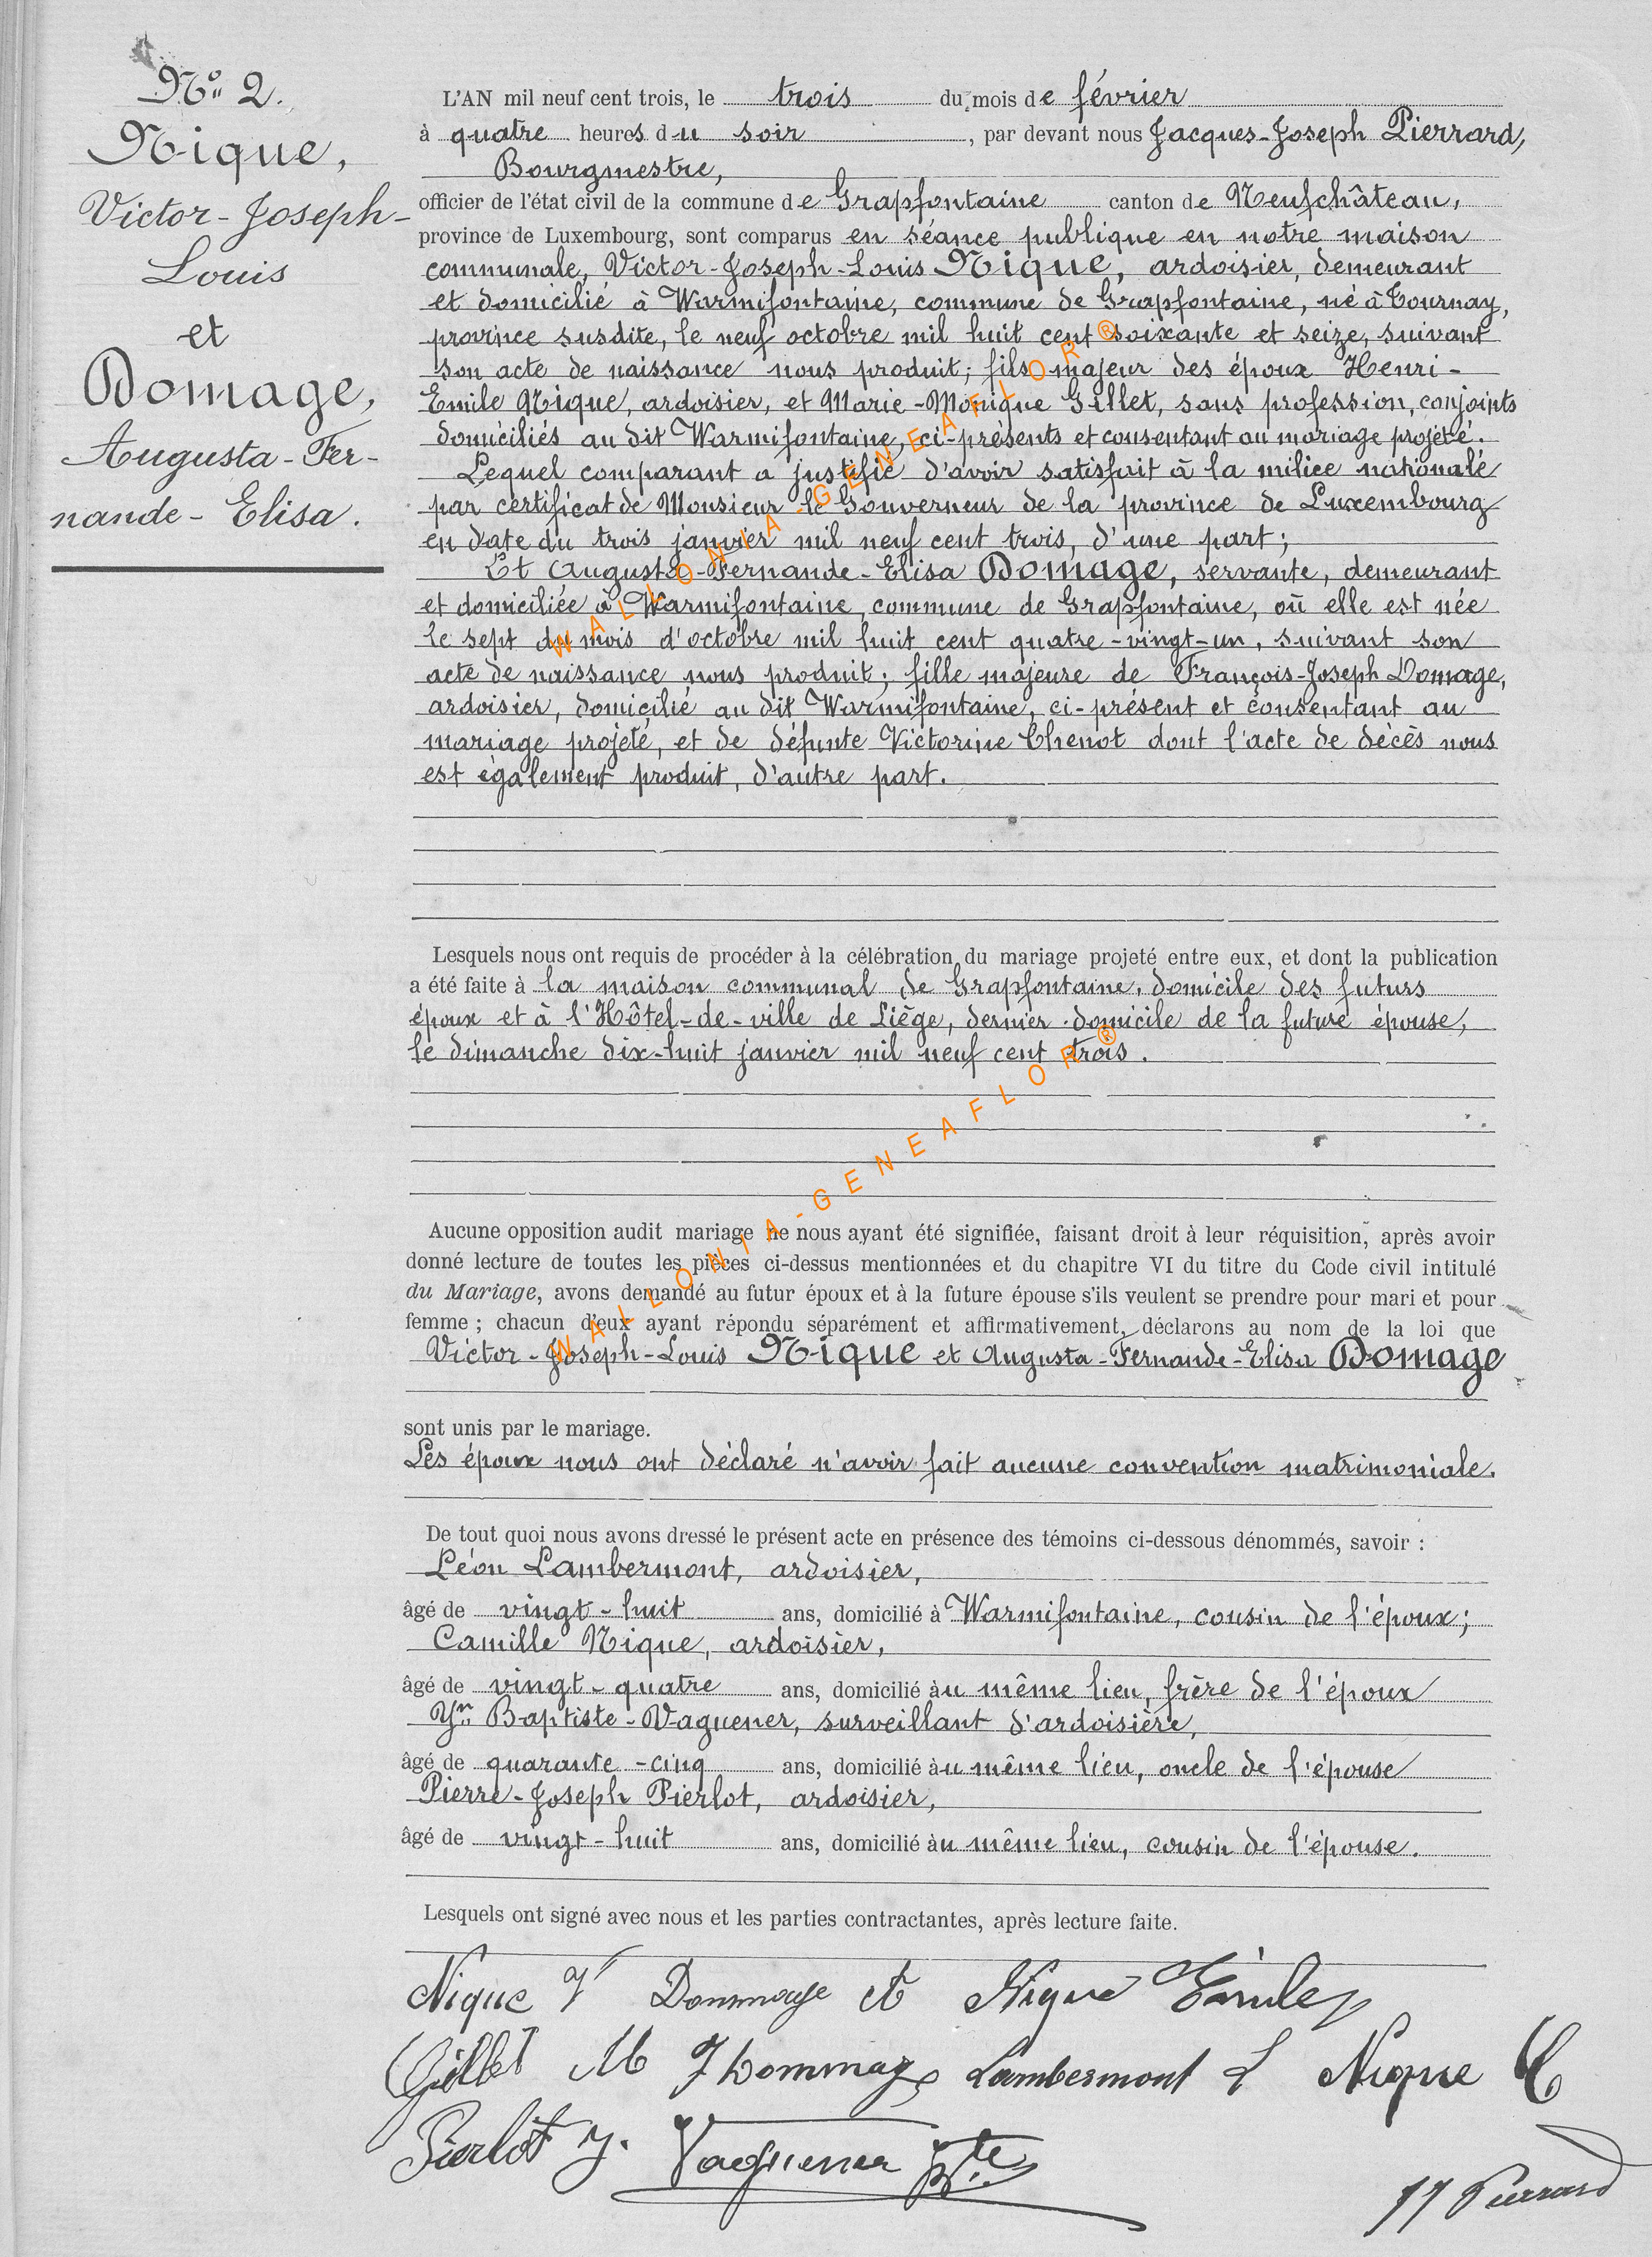 N° 2.
Nique,
Victor-Joseph-
Louis
et
Domage,
Augusta-Fer-
nande-Elisa.
L'AN mil neuf cent trois, le trois du mois de février
à quatre heures du soir, par devant nous Jacques-Joseph Pierrard,
Bourgmestre,
officier de l'état civil de la commune de Grapfontaine canton de Neufchâteau,
province de Luxembourg, sont comparus en séance publique en notre maison
communale, Victor-Joseph-Louis Nique, ardoisier, demeurant
et domicilié à Warmifontaine, commune de Grapfontaine, né à Tournay,
province susdite, le neuf octobre mil huit cent soixante et seize, suivant
son acte de naissance nous produit; fils majeur des époux Henri-
Emile Nique, ardoisier, et Marie-Monique Gillet, sans profession, conjoints
domiciliés au dit Warmifontaine, ci-présents et consentant au mariage projeté.
Lequel comparant a justifié d'avoir satisfait à la milice nationale
par certificat de Monsieur le Gouverneur de la province de Luxembourg
en date du trois janvier mil neuf cent trois, d'une part;
Et Augusta-Fernande-Elisa Domage, servante, demeurant
et domiciliée à Warmifontaine, commune de Grapfontaine, où elle est née
le sept du mois d'octobre mil huit cent quatre-vingt-un, suivant son
acte de naissance nous produit; fille majeure de François-Joseph Domage,
ardoisier, domicilié au dit Warmifontaine, ci-présent et consentant au
mariage projeté, et de défunte Victorine Chenot dont l'acte de décès nous
est également produit, d'autre part.
WALLONIA-GENEAFLOR®
Lesquels nous ont requis de procéder à la célébration du mariage projeté entre eux, et dont la publication
a été faite à la maison communal de Grapfontaine, domicile des futurs
époux et à l'Hôtel-de-ville de Liège, dernier domicile de la future épouse,
le dimanche dix-huit janvier mil neuf cent trois.
WALLONIA-GENEAFLOR®
Aucune opposition audit mariage ne nous ayant été signifiée, faisant droit à leur réquisition, après avoir
donné lecture de toutes les pièces ci-dessus mentionnées et du chapitre VI du titre du Code civil intitulé
du Mariage, avons demandé au futur époux et à la future épouse s'ils veulent se prendre pour mari et pour
femme ; chacun d'eux ayant répondu séparément et affirmativement, déclarons au nom de la loi que
Victor-Joseph-Louis Nique et Augusta-Fernande-Elisa Domage
sont unis par le mariage.
Les époux nous ont déclaré n'avoir fait aucune convention matrimoniale.
De tout quoi nous avons dressé le présent acte en présence des témoins ci-dessous dénommés, savoir :
Léon Lambermont, ardoisier,
âgé de vingt-huit ans, domicilié à Warmifontaine, cousin de l'époux;
Camille Nique, ardoisier,
âgé de vingt-quatre ans, domicilié au même lieu, frère de l'époux
Jn Baptiste-Vaguener, surveillant d'ardoisière,
âgé de quarante-cinq ans, domicilié au même lieu, oncle de l'épouse
Pierre-Joseph Pierlot, ardoisier,
âgé de vingt-huit ans, domicilié au même lieu, cousin de l'épouse.
Lesquels ont signé avec nous et les parties contractantes, après lecture faite.
Nique V Dommage A Nique Emile
Gillet M J Dommage Lambermont L Nique C
Pierlot J. Vaguener Bte
JJ Pierrard